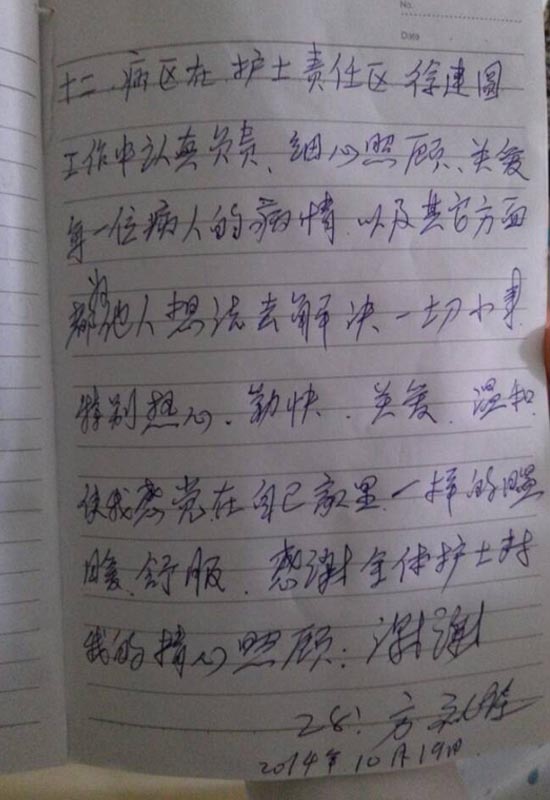 No.
Date
十二.病区在护士责任区徐建圆
工作中认真负责、细心照顾、关爱
每一位病人的病情.以及其它方面
都为他人想法去解决一切小事.
特别热心、勤快、关爱、温和.
使我感觉在自己家里一样的温
暖、舒服.感谢全体护士对
我的精心照顾:谢谢
28: 方
2014年10月19日.